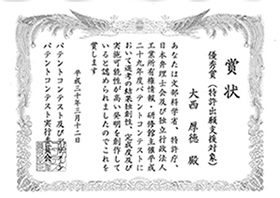 賞状
優秀賞(特許出願支援対象)
大西 厚徳 殿
あなたは文部科学省、特許庁、
日本弁理士会及び独立行政法人
工業所有権情報・研修館主催平成
二十九年度パテントコンテストに
おいて選考の結果独創性、完成度及び
実施可能性が高い発明を創作して
いると認められましたのでこれを
賞します
平成三十年三月十二日
パテントコンテスト及びデザイン
パテントコンテスト実行委員会